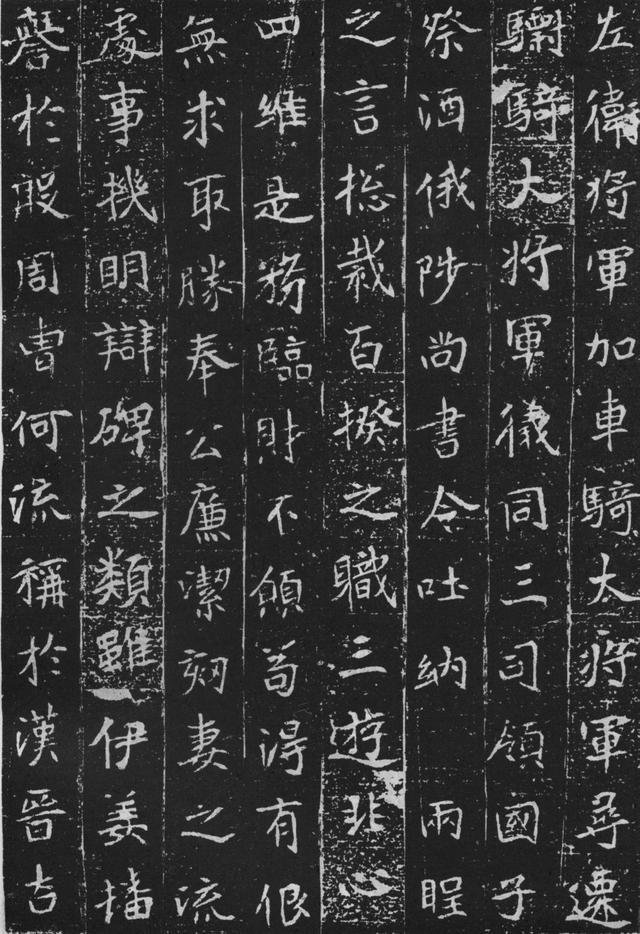 左衛将軍加車騎大将軍尋遷
驃騎大将軍儀同三司領國子
祭酒俄陟尚書令吐納 兩聖
之言揔裁百揆之職三遊非心
四維是務臨財不傾苟淂有恨
無求取勝奉公廉潔刼妻之流
處事機明辯碑之類雖伊姜播
譽於殷周曺何流稱於漢晉古